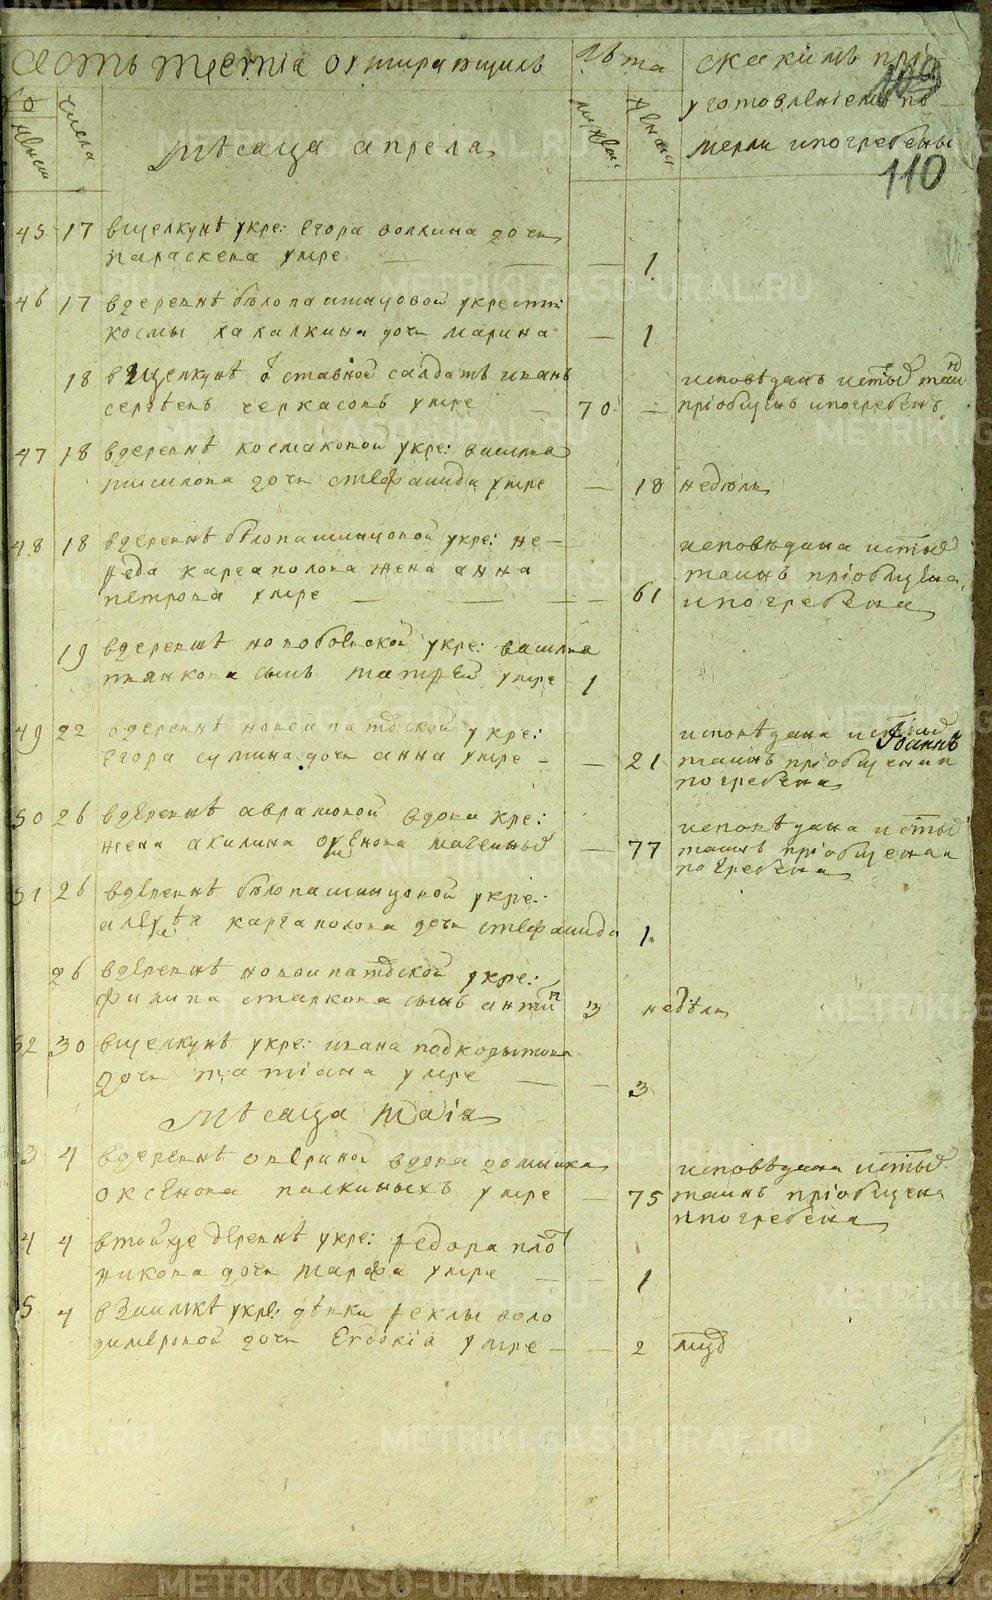 часть третїа о умирающихъ
лѣта
скакимъ прі
уготовленіемъ по
мерли и погребены
числа
женска
мѣсяца апреля
110
45 17 вщелкунѣ укре: егора волкина дочь
параскева умре — — — 1
46 17 вдеревнѣ бѣлопашинцовой укрестья
космы хахалкина дочь марина — 1
18 вщелкунѣ отставной салдатъ иванъ
сергѣевъ черкасовъ умре — 70 —
исповѣданъ истыхъ таинъ
пріобщенъ и погребенъ
47 18 вдеревнѣ космаковой укре: василья
дочь стефанида умре — 18 недѣль
48 18 вдеревнѣ бѣлопашинцовой укре: не—
феда каргаполова жена анна
петрова умре — — — 61
исповѣдана истыхъ
таинъ пріобщена
и погребена
19 вдеревнѣ новобоевской укре: василья
пьянкова сынъ матфей умре 1
49 22 вдеревнѣ новоипатовской укре:
егора сумина дочь анна умре — — 21
исповѣдана истыхъ
Іоаннъ
таинъ пріобщена и
погребена
50 26 вдеревнѣ аврамовой вдова кре:
жена акилина — 77
исповѣдана истыхъ
таинъ пріобщена и
погребена
51 26 вдеревнѣ бѣлопашинцовой укре:
алеѯѣя каргаполова дочь стефанида 1
26 вдеревнѣ новоипатовской укре:
филипа старкова сынъ антипъ 3 недѣли
52 30 вщелкунѣ укре: ивана подкорытова
дочь татіана умре — — 3
мѣсяца маія
3 4 вдеревнѣ авериной вдова домника
оксенова палкиныхъ умре — 75
исповѣдана истыхъ
таинъ пріобщена
и погребена
4 4 втойже деревнѣ укре: федора пло
никова дочь марфа умре — — 1
5 4 взаимкѣ укре: дѣвки феклы воло
димеровой дочь евдокіа умре — — 2